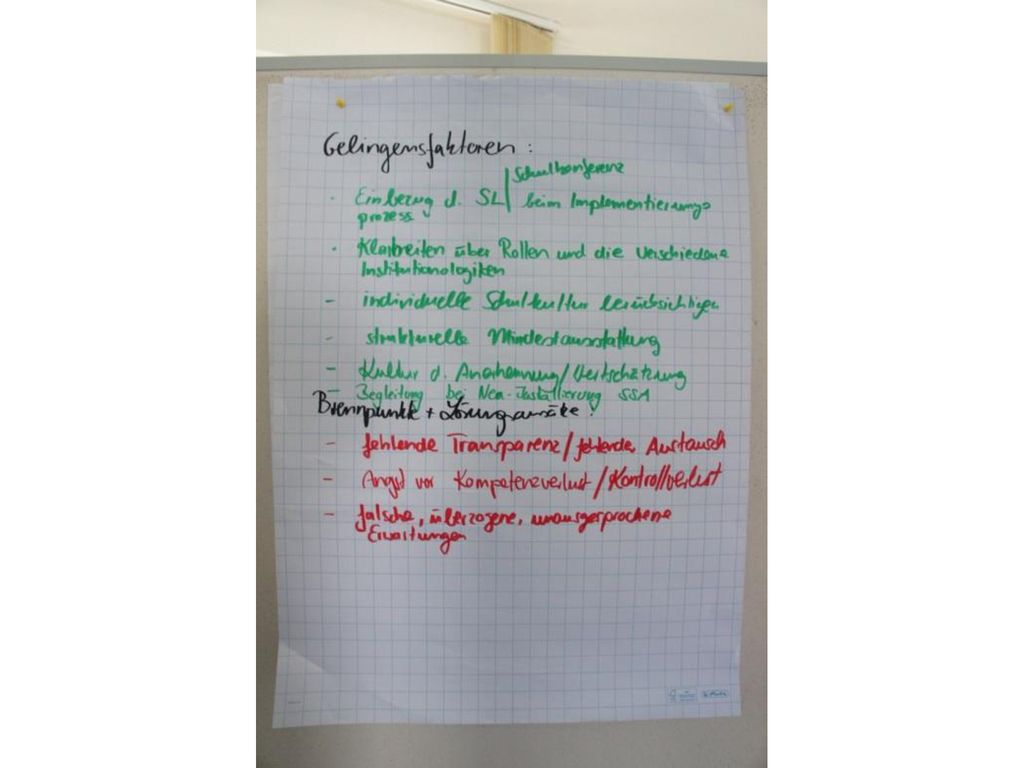 Gelingensfaktoren :
Schulkonferenz
· Einbezug d. SL | beim Implementierungs
prozess
· Klarheiten über Rollen und die verschiedene
Institutionslogiken
- individuelle Schulkultur berücksichtigen
- strukturelle Mindestausstattung
- Kultur d. Anerkennung/Wertschätzung
- Begleitung bei Neu-Installierung SSA
Brennpunkte + Lösungsansätze :
- fehlende Transparenz/fehlender Austausch
- Angst vor Kompetenzverlust/Kontrollverlust
- falsche, überzogene, unausgesprochene
Erwartungen